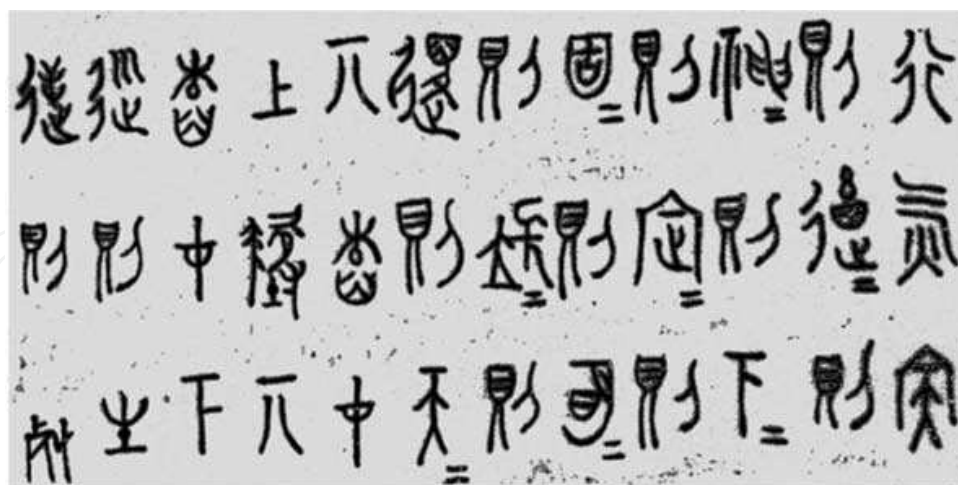 行氣吞
則蓄=則
神=則下=
則定=則
固=則萌=
則長=則
復則天=
丌本才
上地丌
本才下
順則生
逆則死